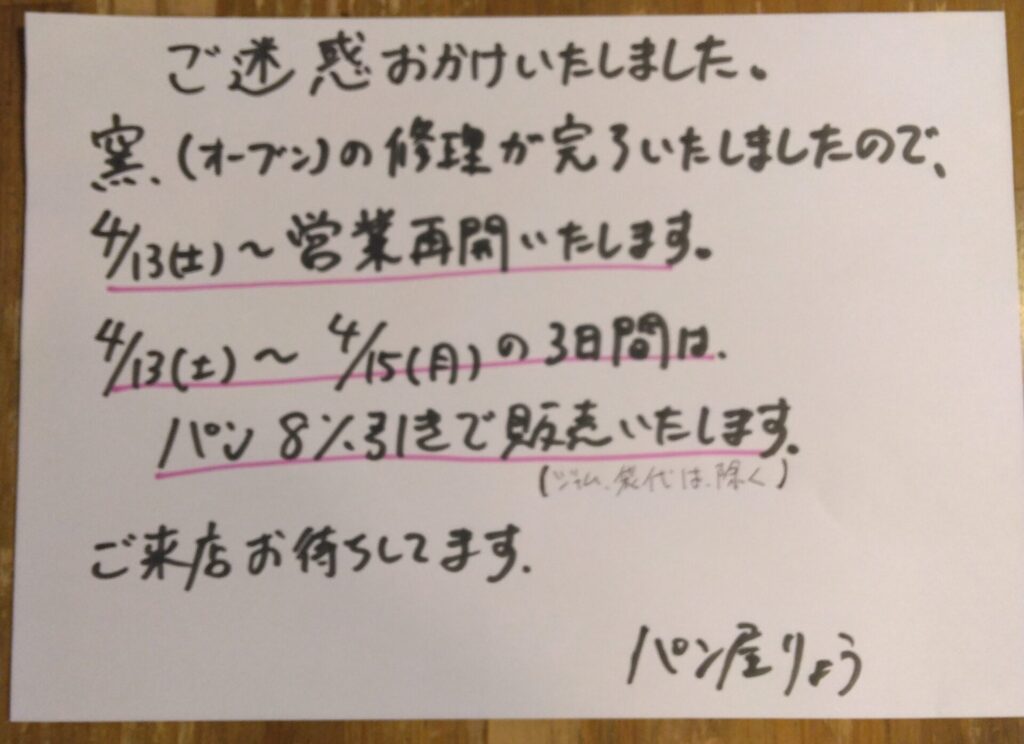 ご迷惑おかけいたしました。
窯、(オーブン)の修理が完了いたしましたので、
4/13(土)～営業再開いたします。
4/13(土)～ 4/15(月)の3日間は、
パン 8%引きで販売いたします。
(ジャム、袋代は、除く)
ご来店お待ちしてます。
パン屋りょう